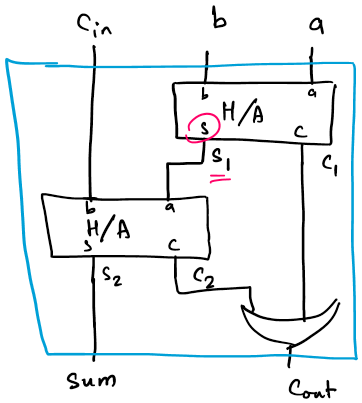 Cin b a
b a
H/A
S C
S1 C1
b a
H/A
S C
S2 C2
Sum Cout